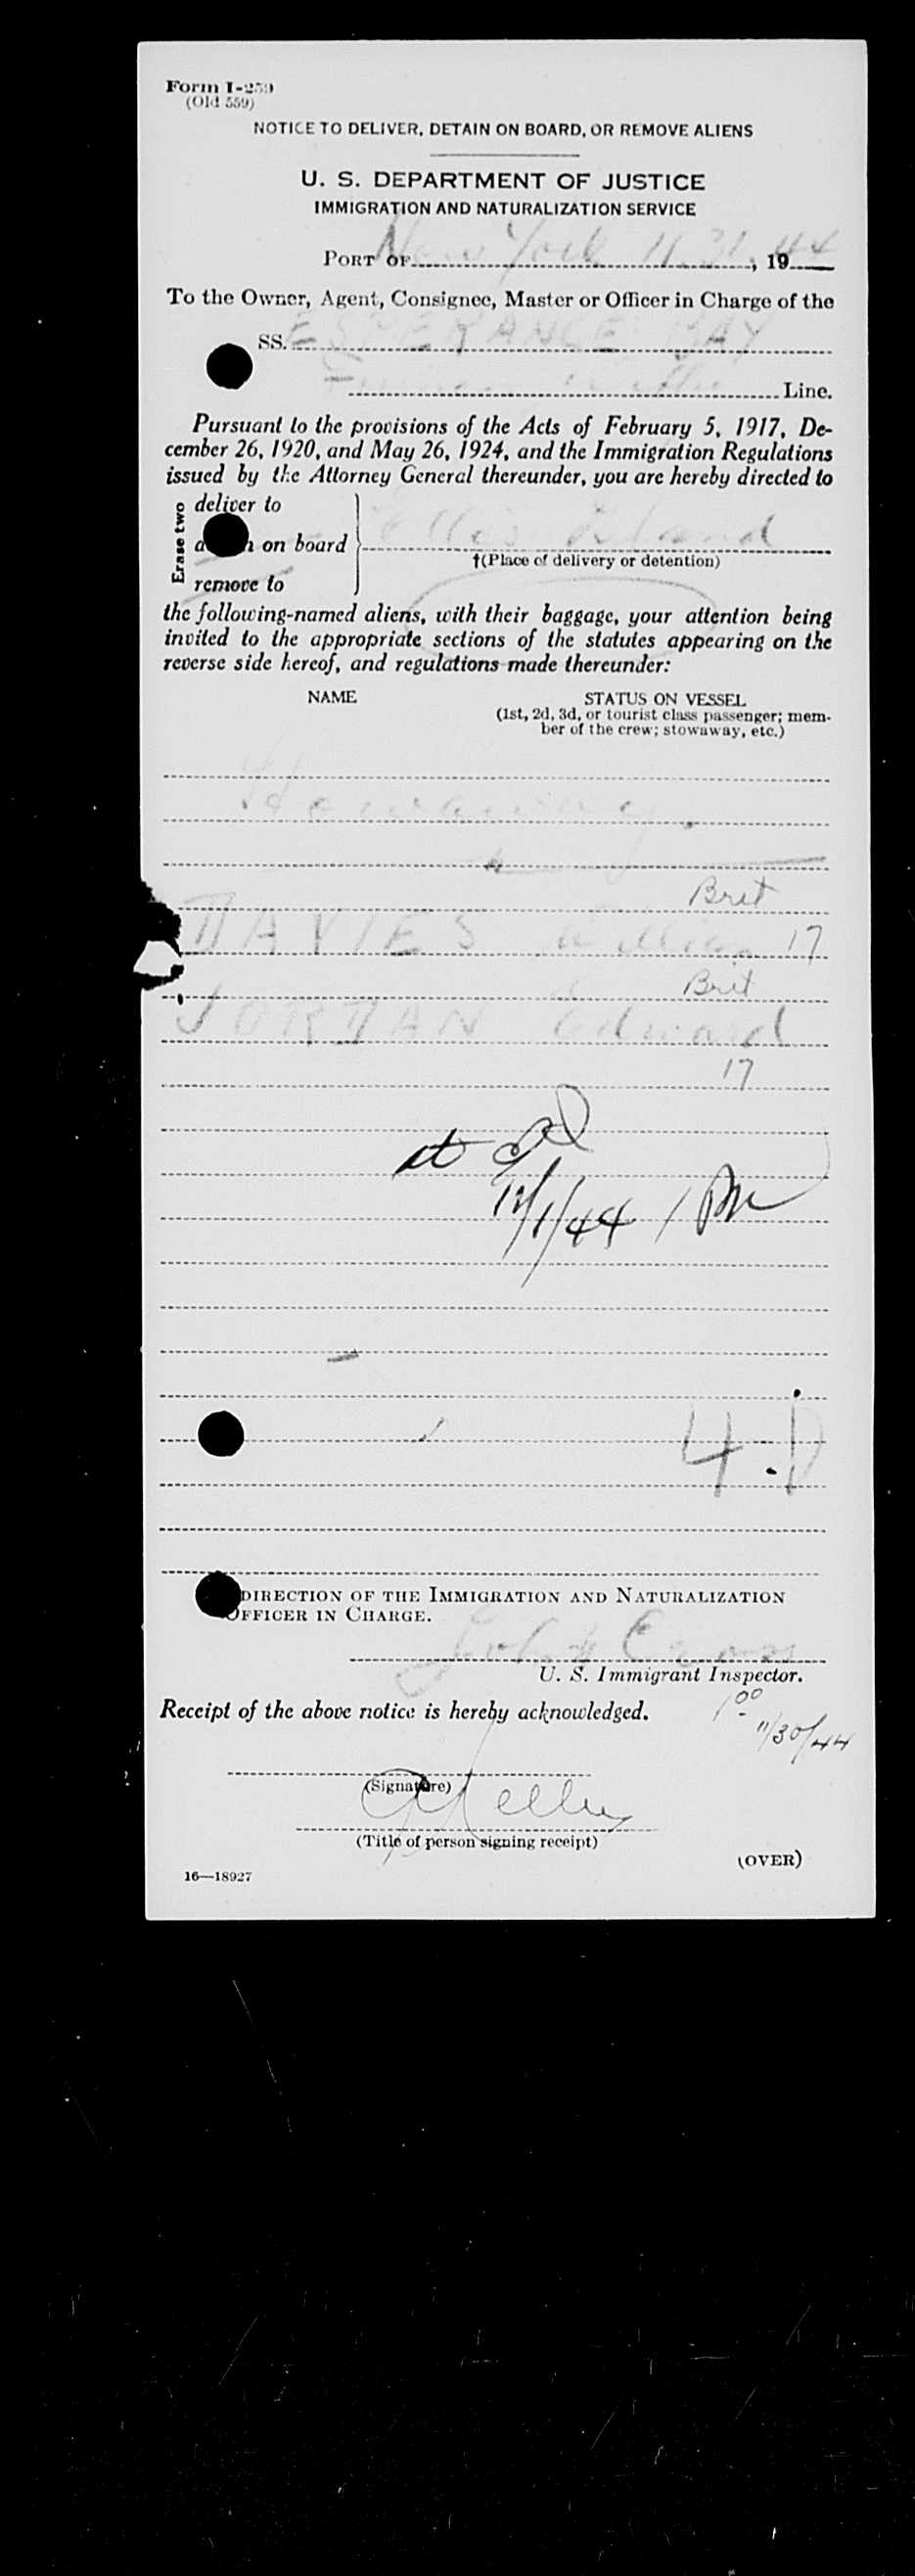 Form I-259
(Old 559)
NOTICE TO DELIVER, DETAIN ON BOARD, OR REMOVE ALIENS
U. S. DEPARTMENT OF JUSTICE
IMMIGRATION AND NATURALIZATION SERVICE
PORT OF New York 11.31.44, 19
To the Owner, Agent, Consignee, Master or Officer in Charge of the
SS. ESPERANCE BAY
Line.
Pursuant to the provisions of the Acts of February 5, 1917, De-
cember 26, 1920, and May 26, 1924, and the Immigration Regulations
issued by the Attorney General thereunder, you are hereby directed to
Erase two
deliver to
on board
remove to
Ellis Island
†(Place of delivery or detention)
the following-named aliens, with their baggage, your attention being
invited to the appropriate sections of the statutes appearing on the
reverse side hereof, and regulations made thereunder:
NAME STATUS ON VESSEL
(1st, 2d, 3d, or tourist class passenger; mem-
ber of the crew; stowaway, etc.)
Brit
DAVIES William 17
Brit
JORDAN Edward
17
at
12/1/44 1 PM
4
DIRECTION OF THE IMMIGRATION AND NATURALIZATION
OFFICER IN CHARGE.
U. S. Immigrant Inspector.
Receipt of the above notice is hereby acknowledged.
1 00
11/30/44
(Signature)
(Title of person signing receipt)
(OVER)
16—18927